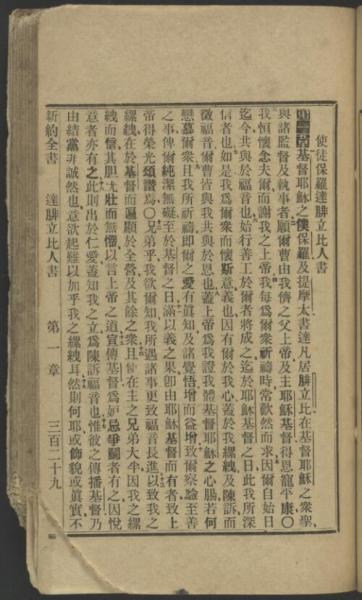 使徒保羅達腓立比人書
基督耶穌之僕保羅及提摩太書達凡居腓立比在基督耶穌之衆聖
與諸監督及執事者願爾曹由我儕之父上帝及主耶穌基督得恩寵平康○
我恒懷念夫爾而謝我之上帝我每爲爾衆祈禱時常歡然而求因爾自始日
迄今共與於福音也始行善工於爾者將成之迄於耶穌基督之日此我所深
信者也如是我爲爾衆而懷斯意義也因有爾於我心蓋於我縲絏及陳訴而
徵福音爾曹皆與我共與於恩也蓋上帝爲我證我體基督耶穌之心腸若何
戀慕爾衆且我所祈禱即爾之愛有眞知及諸覺悟增而益增致爾察諭至善
之事俾爾純潔無礙至於基督之日滿以義之果卽由耶穌基督而有者致上
帝得榮光頌讚焉○兄弟乎我欲爾知我所遇諸事更致福音長進以致我之
縲絏在於基督而徧顯於全營及其餘之衆且在主之兄弟大半因我之縲
絏而信其膽尤壯而無懼以言上帝之道宣傳基督爲妒忌爭鬭者有之因悅
意者亦有之此則出於仁愛蓋知我之立爲陳訴福音也惟彼之傳播基督乃
由結黨非誠然也意欲起難以加乎我之縲絏耳然則何耶或飾貌或眞實不
新約全書 達腓立比人書 第一章 三百二十九